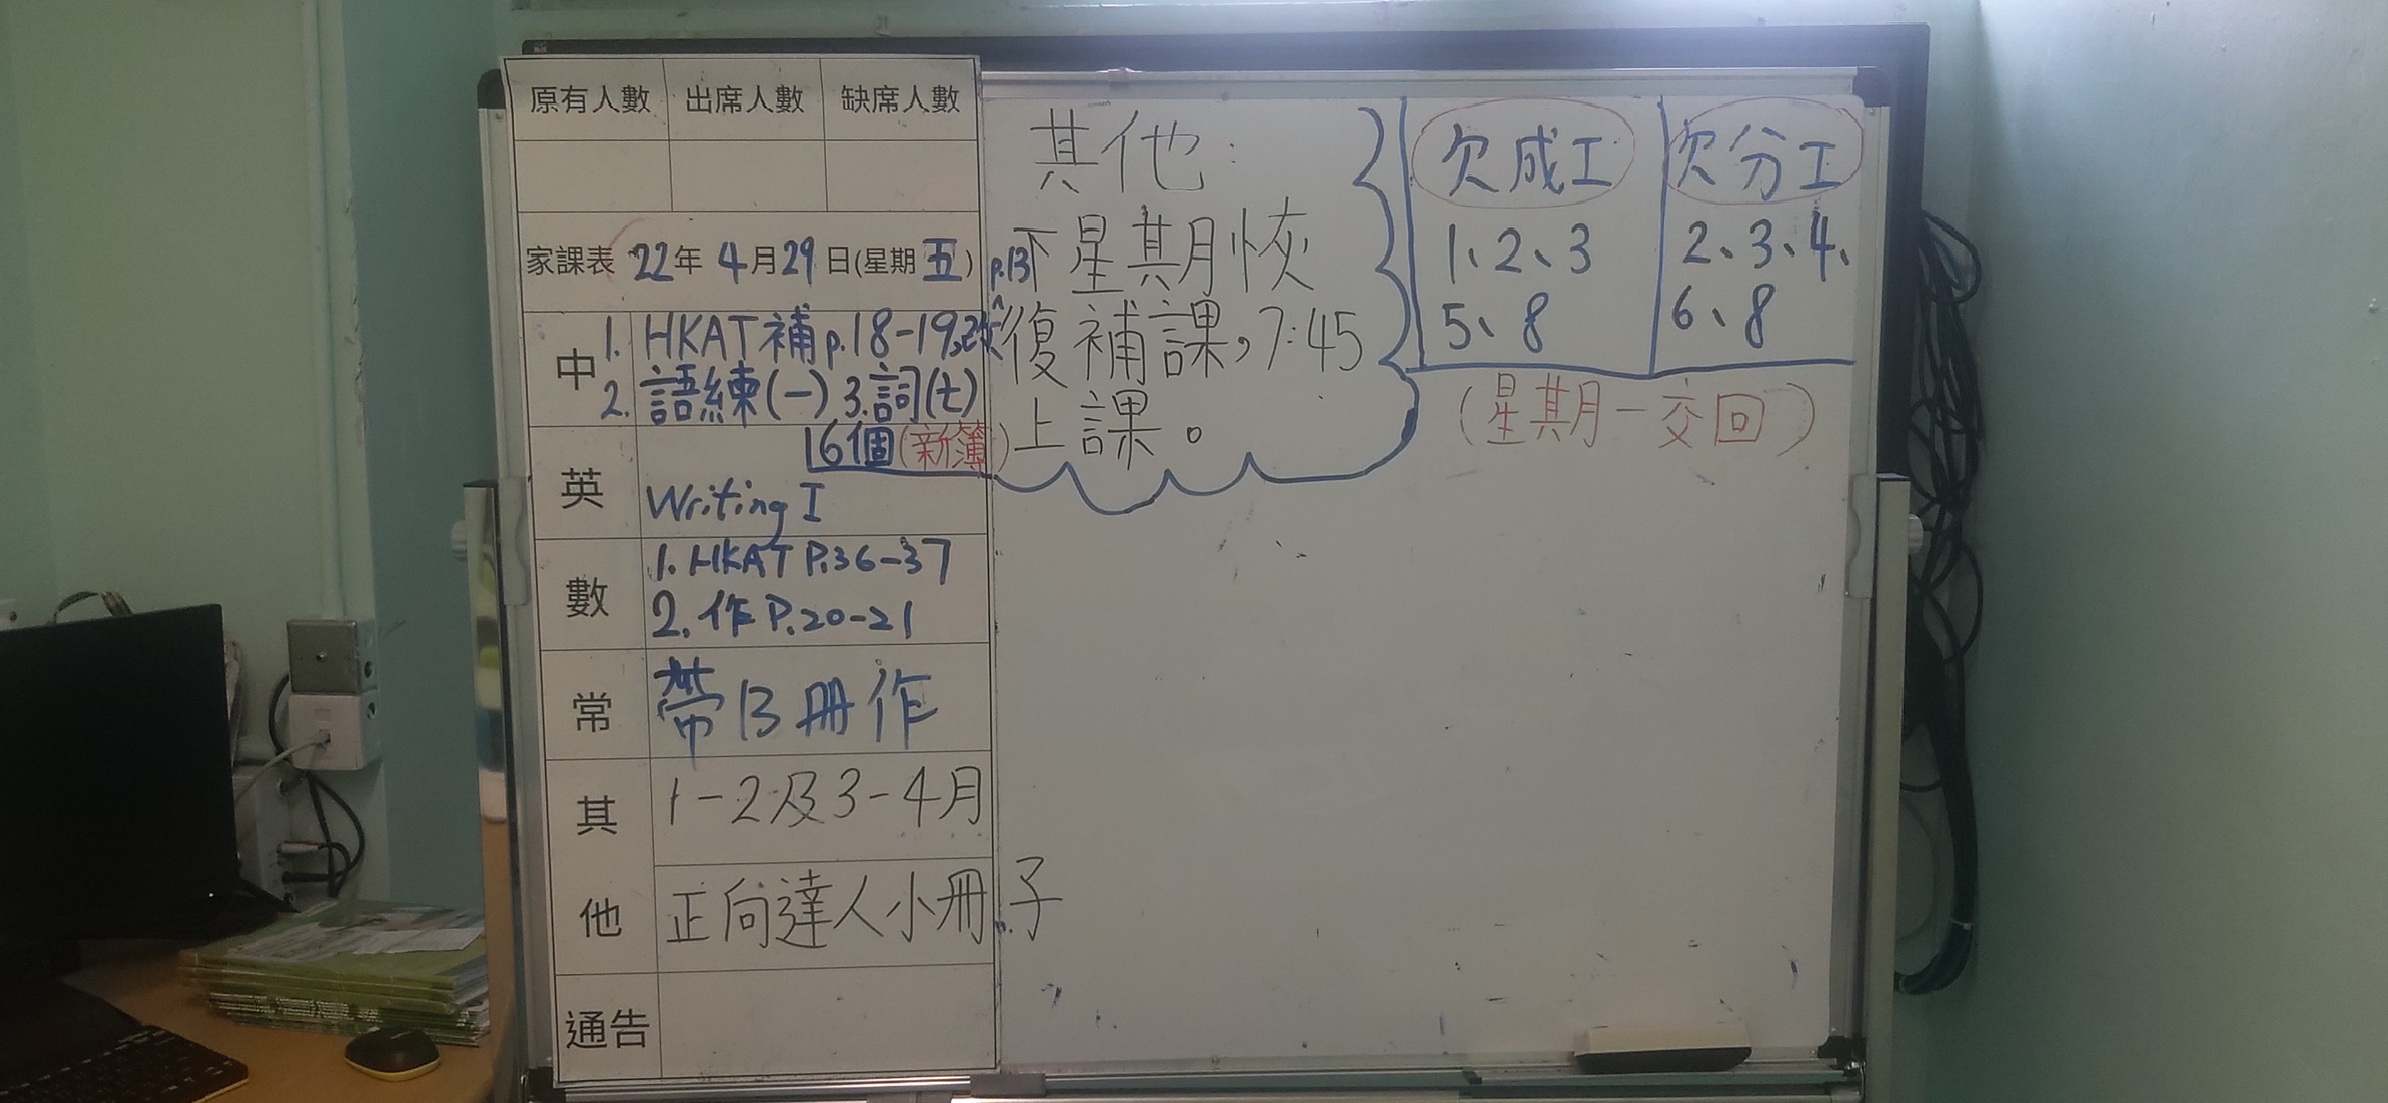 原有人數 出席人數 缺席人數
家課表 22年 4月29日(星期五)
中
1. HKAT補p.18-19,改p.13
2. 語練(一) 3.詞(七)
16個(新簿)
英
Writing I
數
1. HKAT P.36-37
2. 作 P.20-21
常
帶B冊作
其他
1-2及3-4月
正向達人小冊子
通告
其他:
下星期恢
復補課,7:45
上課。
欠成工
1、2、3
5、8
欠分工
2、3、4、
6、8
(星期一交回)